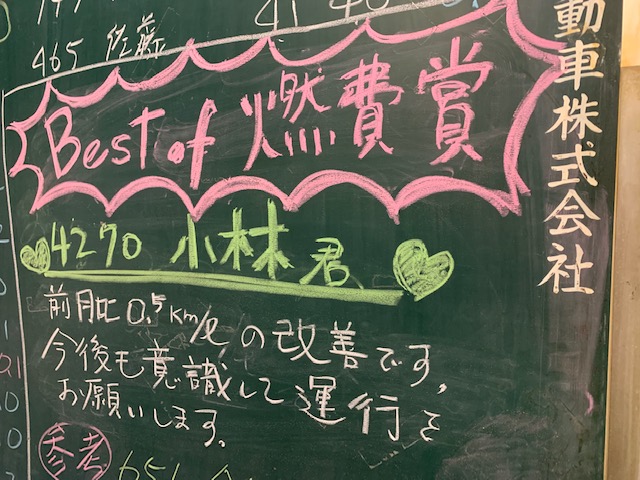 465 佐藤
Best of 燃費賞
4270 小林君
前月比 0.5km/ℓの改善です。
今後も意識して運行を
お願いします。
参考
動車株式会社